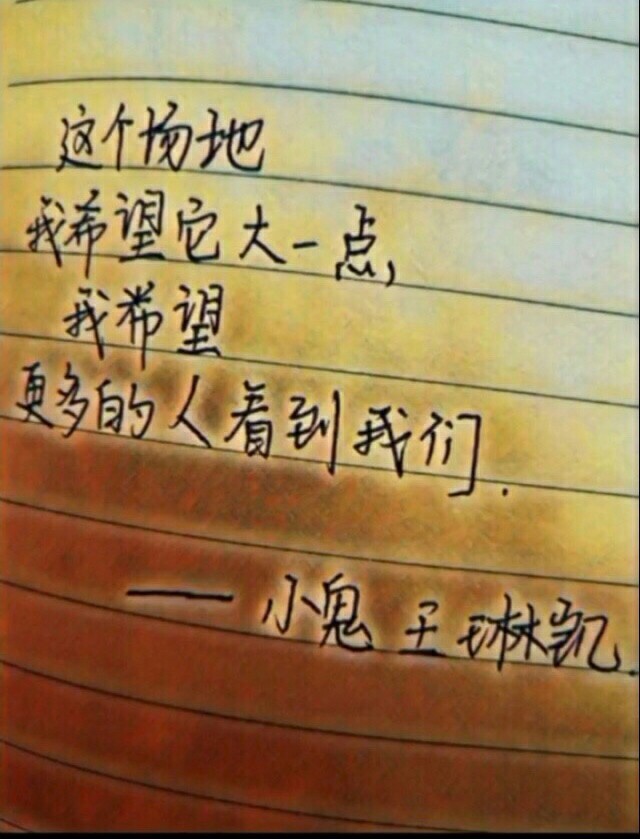 这个场地
我希望它大一点,
我希望
更多的人看到我们.
——小鬼 王琳凯.